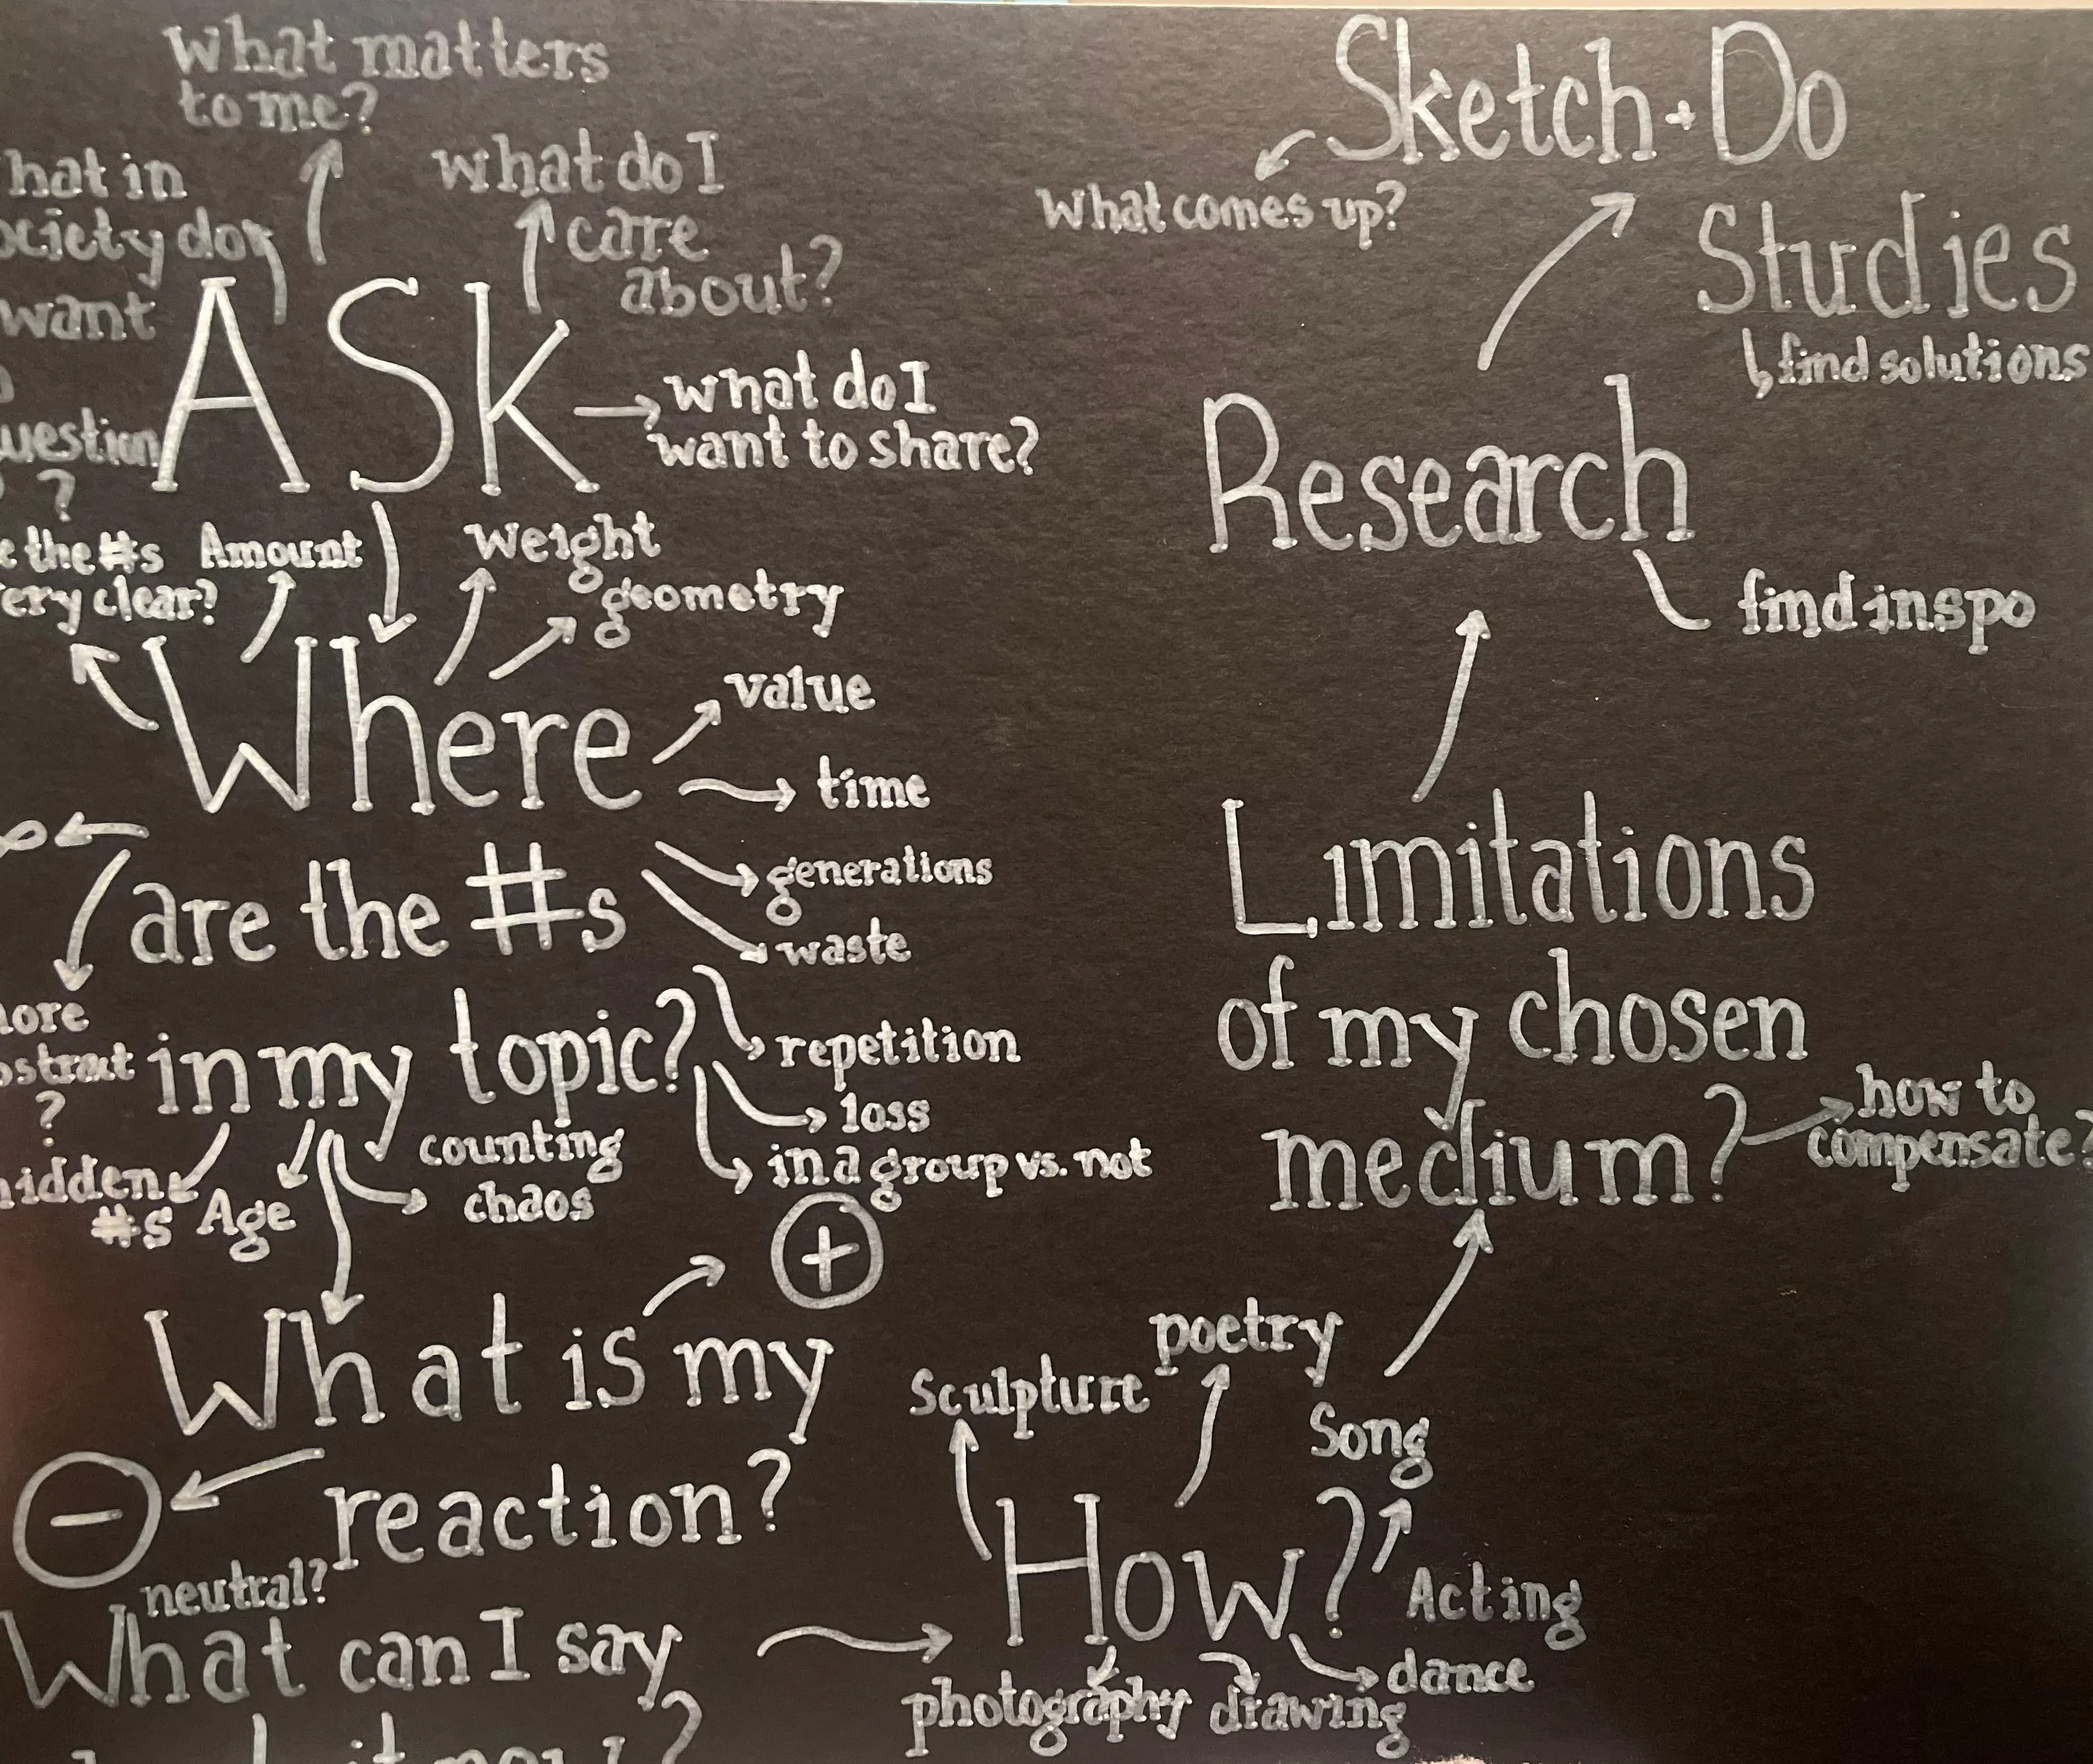 What matters
to me?
what do I
care
about?
hat in
ociety do
want
uestion
?
ASk
what do I
want to share?
e the #s
ery clear?
Amount
weight
geometry
Where
value
time
generations
waste
are the #s
in my topic?
ore
strat
?
repetition
loss
in a group vs. not
hidden
#s
Age
counting
chaos
+
What is my
reaction?
-
neutral?
What can I say
it now?
How?
Sculpture
poetry
Song
Acting
dance
drawing
photography
Limitations
of my chosen
medium?
how to
compensate?
Research
find inspo
Sketch + Do
What comes up?
Studies
find solutions